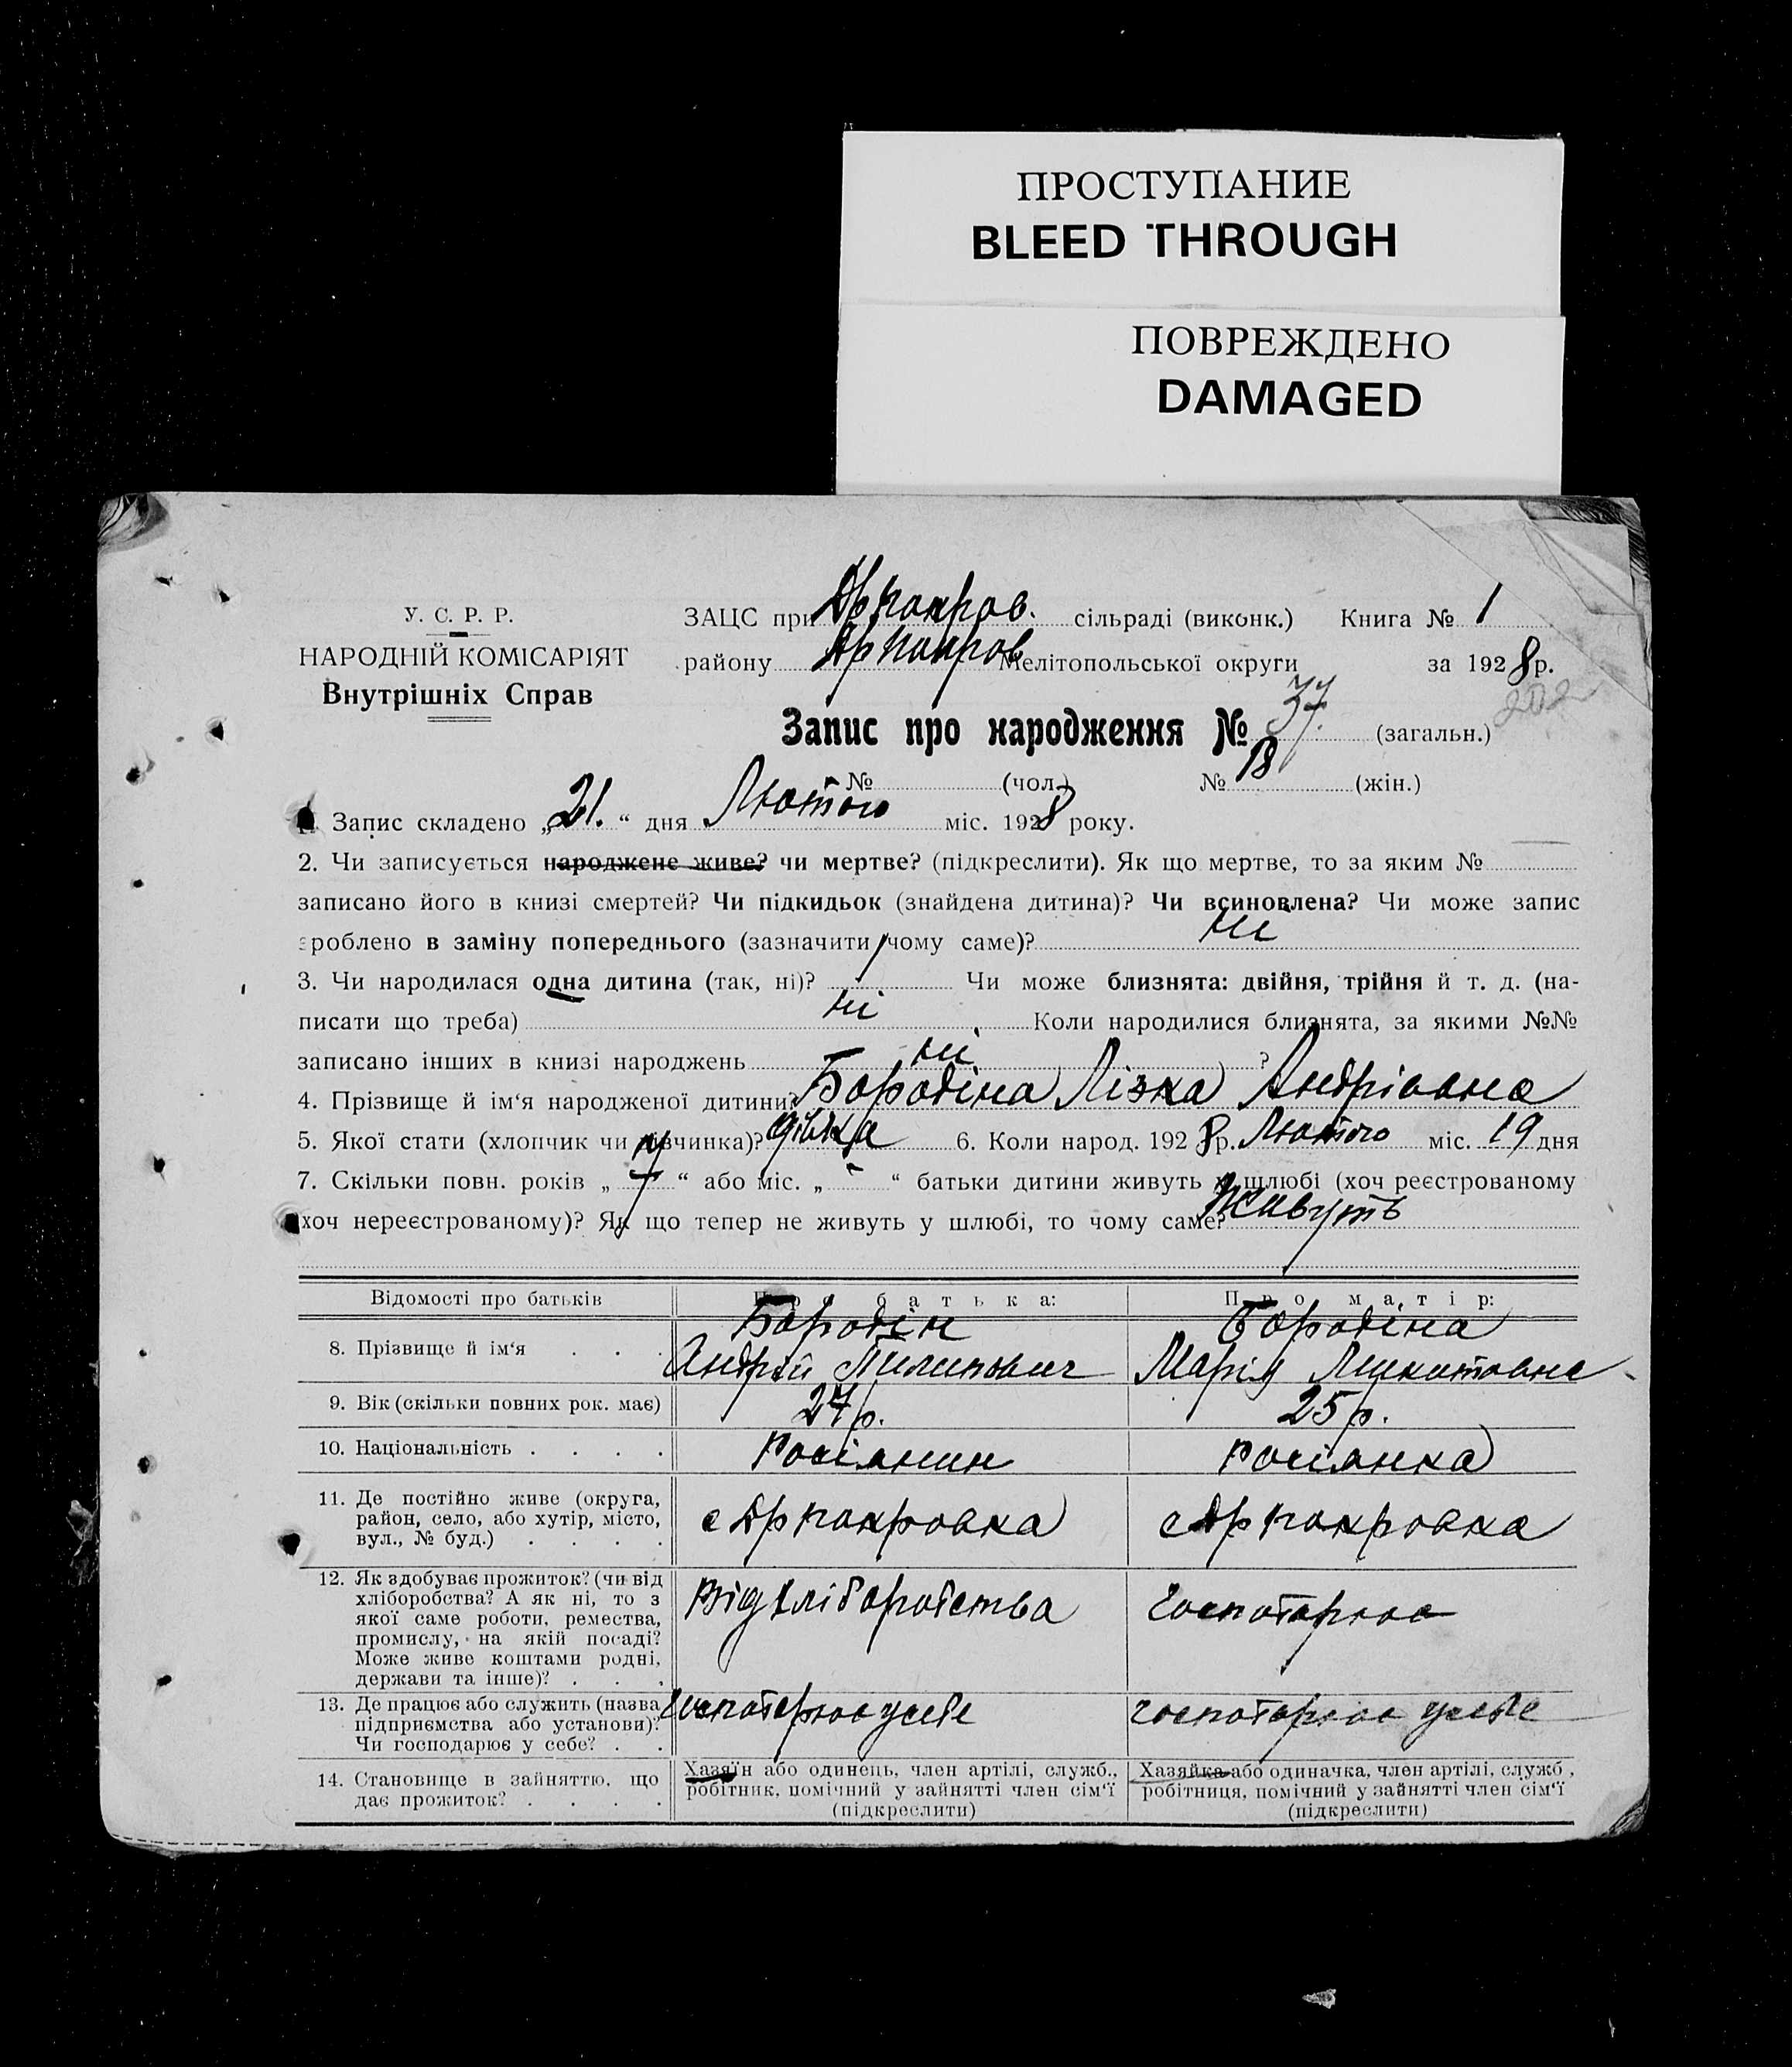 ПРОСТУПАНИЕ
BLEED THROUGH
ПОВРЕЖДЕНО
DAMAGED
У. С. Р. Р.
НАРОДНІЙ КОМІСАРІЯТ
Внутрішніх Справ
ЗАЦС при сільраді (виконк.) Книга № 1
району Мелітопольської округи за 1928 р.
Запис про народження № 37. (загальн.)
№ (чол.) № 18 (жін.)
1. Запис складено „21.“ дня Лютого міс. 1928 року.
2. Чи записується народжене живе? чи мертве? (підкреслити). Як що мертве, то за яким №
записано його в книзі смертей? Чи підкидьок (знайдена дитина)? Чи всиновлена? Чи може запис
зроблено в заміну попереднього (зазначити чому саме)? ні
3. Чи народилася одна дитина (так, ні)? Чи може близнята: двійня, трійня й т. д. (на-
писати що треба) ні Коли народилися близнята, за якими №№
записано інших в книзі народжень ні ?
4. Прізвище й ім‘я народженої дитини? Бородіна Лізка Андріовна
5. Якої стати (хлопчик чи дівчинка)? дівка 6. Коли народ. 1928 р. Лютого міс. 19 дня
7. Скільки повн. років „7“ або міс. „-“ батьки дитини живуть у шлюбі (хоч реєстрованому
хоч нереєстрованому)? Як що тепер не живуть у шлюбі, то чому саме? Живуть
Відомості про батьків Про батька: Про матір:
8. Прізвище й ім‘я . . . Бородін Андрій Пилипович Бородіна Марія Микитовна
9. Вік (скільки повних рок. має) 27 р. 25 р.
10. Національність . . . . Росіянин Росіянка
11. Де постійно живе (округа,
район, село, або хутір, місто,
вул., № буд.) . . . .
12. Як здобуває прожиток? (чи від
хліборобства? А як ні, то з
якої саме роботи, ремества,
промислу, на якій посаді?
Може живе коштами родні,
держави та інше)? . . .
Від хліборобства
13. Де працює або служить (назва
підприємства або установи)?
Чи господарює у себе? . .
14. Становище в зайняттю, що
дає прожиток? . . . .
Хазяїн або одинець, член артілі, служб.,
робітник, помічний у зайнятті член сім‘ї
(підкреслити)
Хазяйка або одиначка, член артілі, служб.,
робітниця, помічний у зайнятті член сім‘ї
(підкреслити)